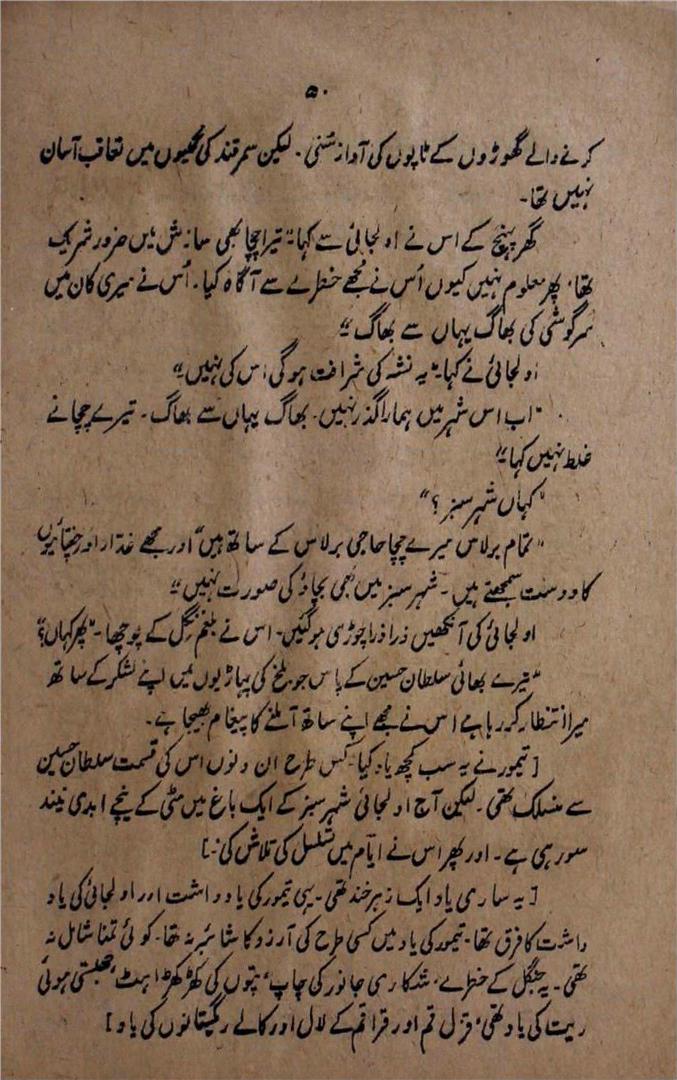 ۵۰
کرنے والے گھوڑوں کے ٹاپوں کی آواز سُنی۔ لیکن سمرقند کی گلیوں میں تعاقب آسان
نہیں تھا۔
گھر پہنچ کے اس نے اولجائی سے کہا: "تیرا چچا بھی سازش میں ضرور شریک
تھا، پھر معلوم نہیں کیوں اُس نے مجھے خطرے سے آگاہ کیا۔ اُس نے میری کان میں
سرگوشی کی بھاگ یہاں سے بھاگ"
اولجائی نے کہا۔ "یہ نشہ کی شرافت ہوگی اس کی نہیں"
"اب اس شہر میں ہمارا گذر نہیں۔ بھاگ یہاں سے بھاگ۔ تیرے چچا نے
غلط نہیں کہا"
"کہاں شہر سبز؟"
"تمام برلاس میرے چچا حاجی برلاس کے ساتھ ہیں" اور مجھے غدار اور چغتائیوں
کا دوست سمجھتے ہیں۔ شہر سبز میں بھی بچاؤ کی صورت نہیں"
اولجائی کی آنکھیں ذرا ذرا چوڑی ہوگئیں۔ اس نے بلغم نگل کے پوچھا۔ "پھر کہاں؟"
"تیرے بھائی سلطان حسین کے پاس جو بلخ کی پہاڑیوں میں اپنے لشکر کے ساتھ
میرا انتظار کر رہا ہے اس نے مجھے اپنے ساتھ آملنے کا پیغام بھیجا ہے۔
[تیمور نے یہ سب کچھ یاد کیا۔ کس طرح ان دنوں اس کی قسمت سلطان حسین
سے منسلک تھی۔ لیکن آج اولجائی شہر سبز کے ایک باغ میں مٹی کے نیچے ابدی نیند
سو رہی ہے۔ اور پھر اس نے ایّام میں تسلسل کی تلاش کی۔]
[یہ ساری یاد ایک زہرخند تھی۔ یہی تیمور کی یادداشت اور اولجائی کی یاد
داشت کا فرق تھا۔ تیمور کی یاد میں کسی طرح کی آرزو کا شائبہ نہ تھا۔ کوئی تمنا شامل نہ
تھی۔ یہ جنگل کے خطرے، شکاری جانور کی چاپ، پتوں کی کھڑکھڑاہٹ، جھلستی ہوئی
ریت کی یاد تھی، قزل قم اور قراقم کے لال اور کالے ریگستانوں کی یاد]